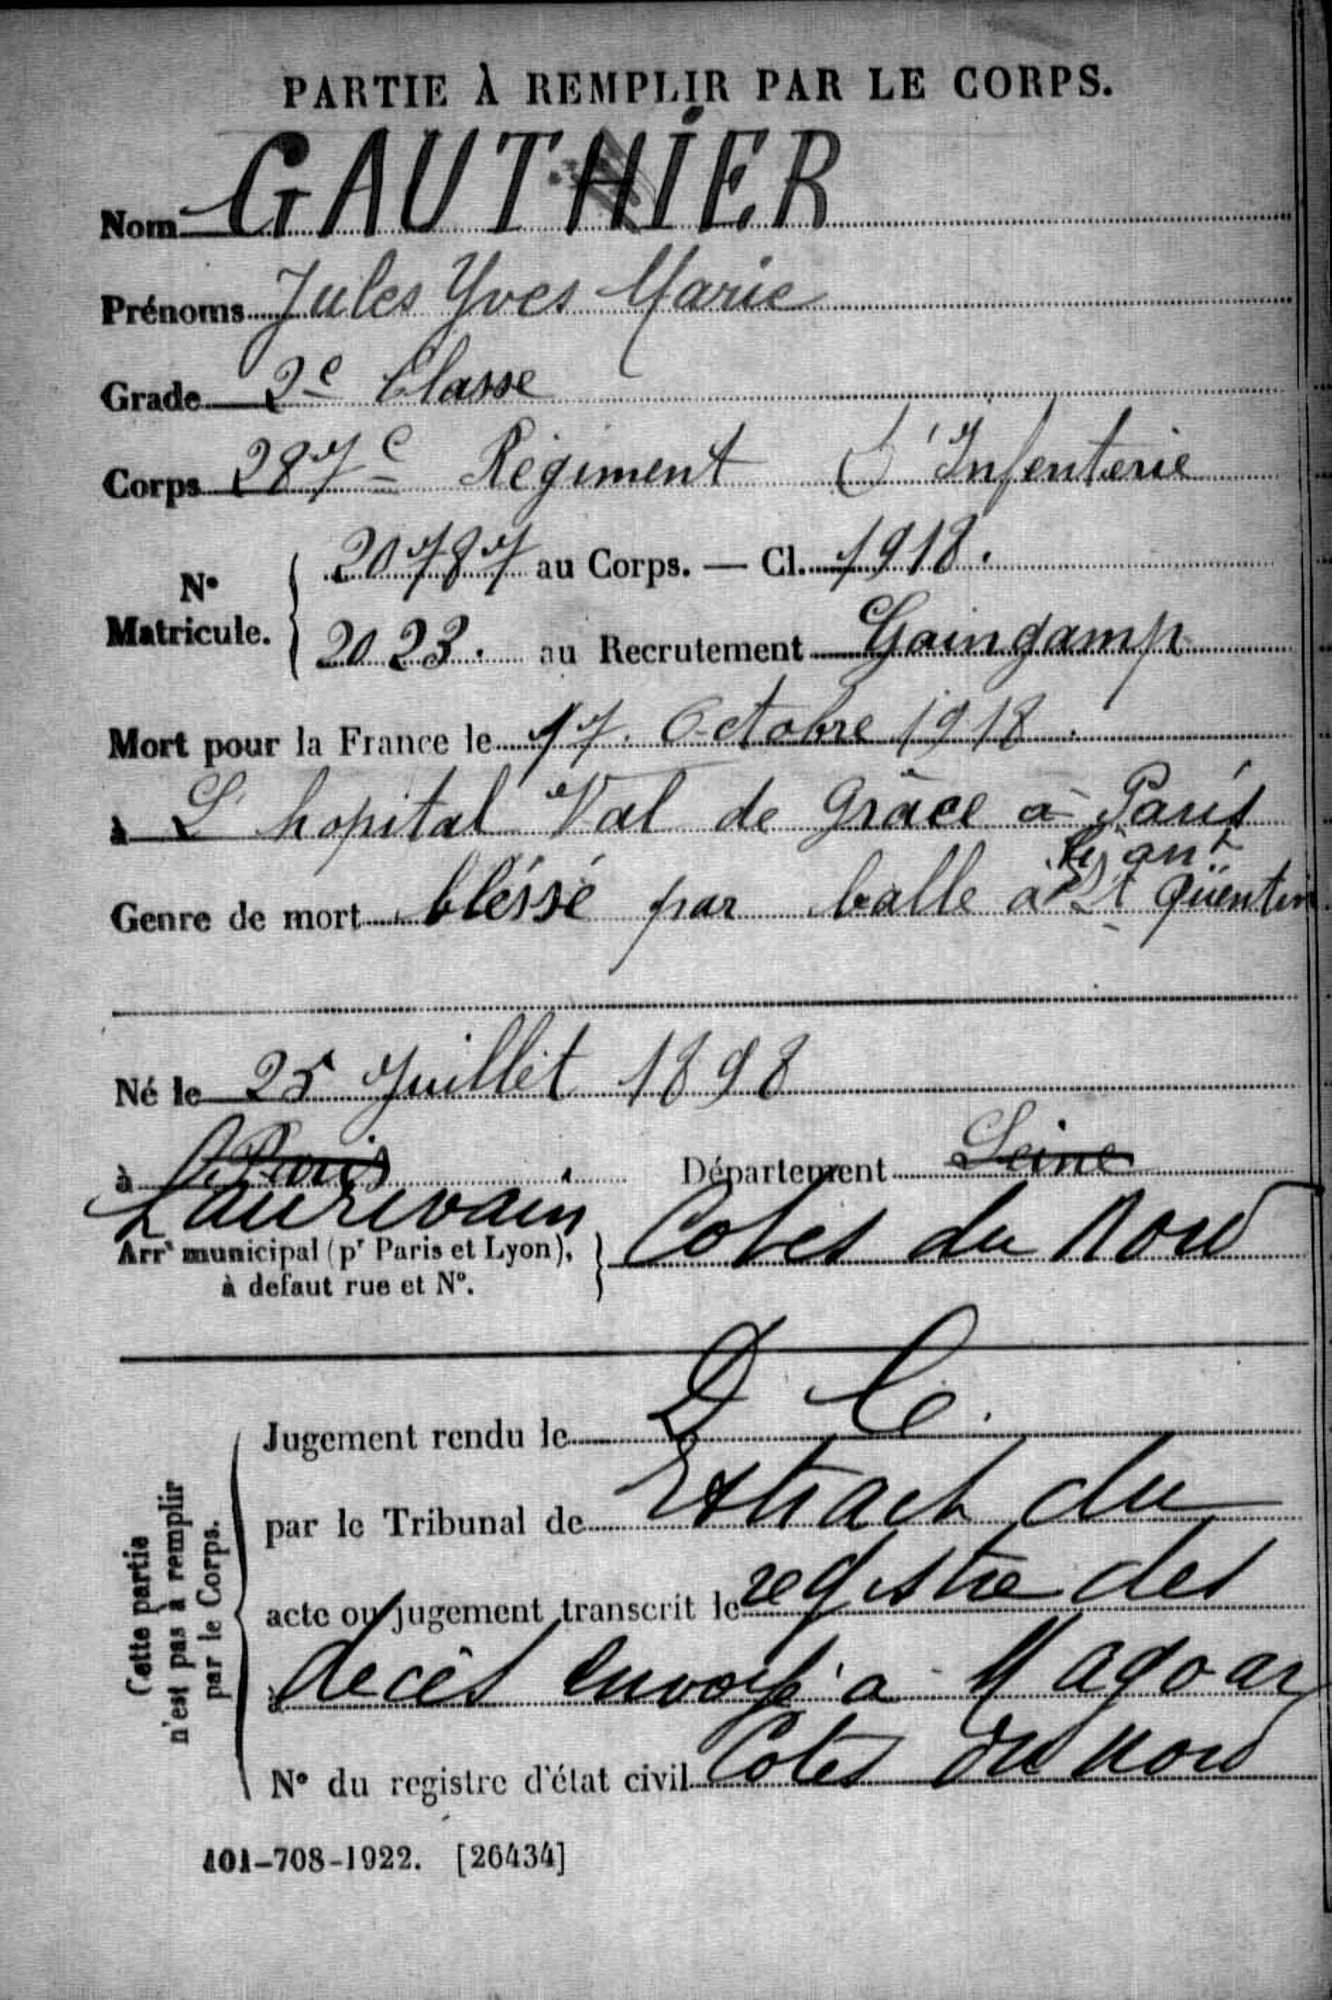 PARTIE À REMPLIR PAR LE CORPS.
Nom GAUTHIER
Prénoms Jules Yves Marie
Grade 2e Classe
Corps 287e Régiment D'Infenterie
N° Matricule. 20787 au Corps. — Cl. 1918.
2023. au Recrutement Gaingamp
Mort pour la France le 17. Octobre 1918.
à L'hopital Val de Grâce à Paris
Genre de mort bléssé par balle à St Quentin
Né le 25 Juillet 1898
à Paris Département Seine
Laurivain
Arrt municipal (pr Paris et Lyon), à defaut rue et N°. Cotes du Nord
Cette partie n'est pas à remplir par le Corps.
Jugement rendu le D C.
par le Tribunal de Extrait du
acte ou jugement transcrit le registre des
à décès envoyé à Magoar
N° du registre d'état civil Cotes du Nord
101-708-1922. [26434]